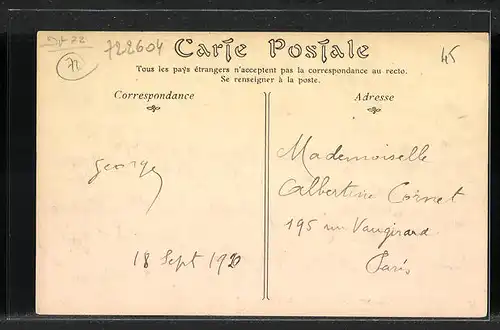 722604
72
45
Carte Postale
Tous les pays étrangers n'acceptent pas la correspondance au recto.
Se renseigner à la poste.
Correspondance
Adresse
Georges
18 Sept 1920
Mademoiselle
Albertine Cornet
195 rue Vaugirard
Paris